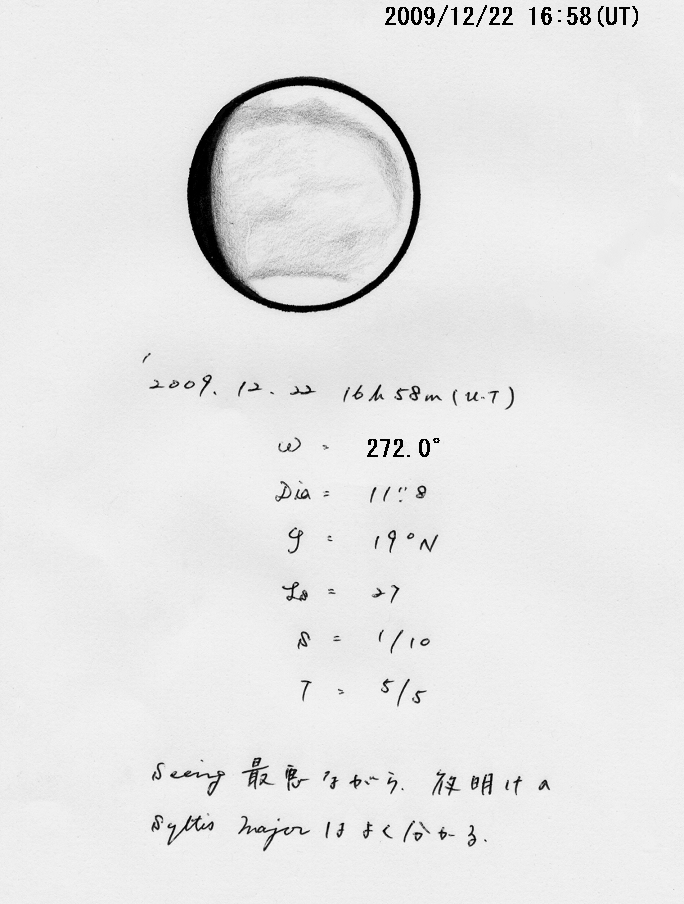 2009/12/22 16:58(UT)
'2009. 12. 22 16h 58m (U.T)
ω = 272.0°
Dia = 11".8
φ = 19°N
Ls = 27
S = 1/10
T = 5/5
Seeing 最悪ながら、夜明けの
Syltis major はよく分かる.